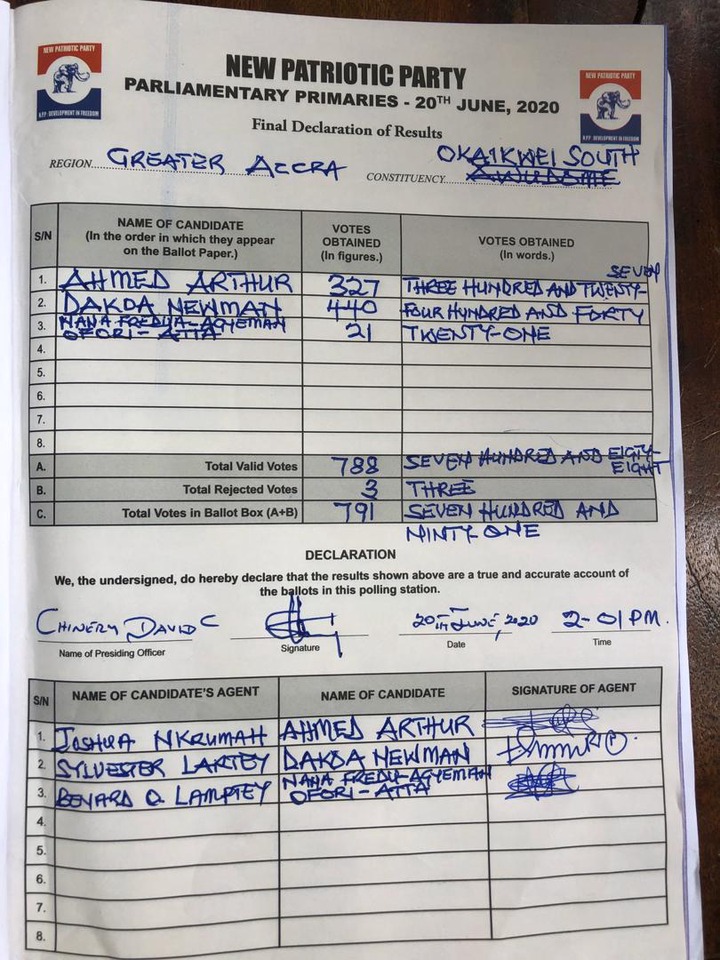 NEW PATRIOTIC PARTY
N.P.P. DEVELOPMENT IN FREEDOM
NEW PATRIOTIC PARTY
PARLIAMENTARY PRIMARIES - 20TH JUNE, 2020
Final Declaration of Results
NEW PATRIOTIC PARTY
N.P.P. DEVELOPMENT IN FREEDOM
REGION... GREATER ACCRA
CONSTITUENCY... OKAIKWEI SOUTH
S/N NAME OF CANDIDATE (In the order in which they appear on the Ballot Paper.) VOTES OBTAINED (In figures.) VOTES OBTAINED (In words.)
1. AHMED ARTHUR 327 THREE HUNDRED AND TWENTY-SEVEN
2. DAKOA NEWMAN 440 FOUR HUNDRED AND FORTY
3. NANA FREDUA-AGYEMAN OFORI-ATTA 21 TWENTY-ONE
4.
5.
6.
7.
8.
A. Total Valid Votes 788 SEVEN HUNDRED AND EIGTY-EIGHT
B. Total Rejected Votes 3 THREE
C. Total Votes in Ballot Box (A+B) 791 SEVEN HUNDRED AND NINTY-ONE
DECLARATION
We, the undersigned, do hereby declare that the results shown above are a true and accurate account of
the ballots in this polling station.
CHINERY DAVID C 20TH JUNE, 2020 2-01 PM.
Name of Presiding Officer Signature Date Time
S/N NAME OF CANDIDATE'S AGENT NAME OF CANDIDATE SIGNATURE OF AGENT
1. JOSHUA NKRUMAH AHMED ARTHUR
2. SYLVESTER LARTEY DAKOA NEWMAN
3. BENARD O. LAMPTEY NANA FREDU-AGYEMAN OFORI-ATTA
4.
5.
6.
7.
8.